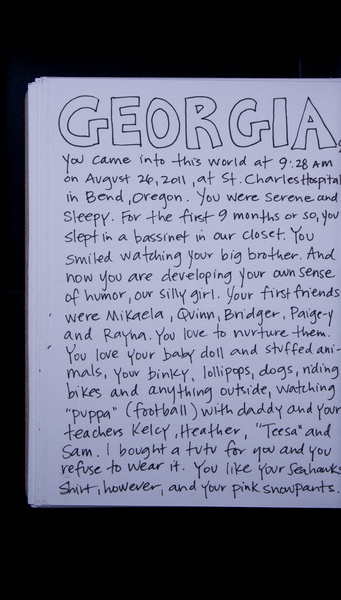 GEORGIA,
You came into this world at 9:28 AM
on August 26, 2011, at St. Charles Hospital
in Bend, Oregon. You were serene and
sleepy. For the first 9 months or so, you
slept in a bassinet in our closet. You
smiled watching your big brother. And
now you are developing your own sense
of humor, our silly girl. Your first friends
were Mikaela, Quinn, Bridger, Paige-y
and Rayna. You love to nurture them.
You love your baby doll and stuffed ani-
mals, your binky, lollipops, dogs, riding
bikes and anything outside, watching
"puppa" (football) with daddy and your
teachers Kelcy, Heather, "Teesa" and
Sam. I bought a tutu for you and you
refuse to wear it. You like your Seahawks
shirt, however, and your pink snowpants.